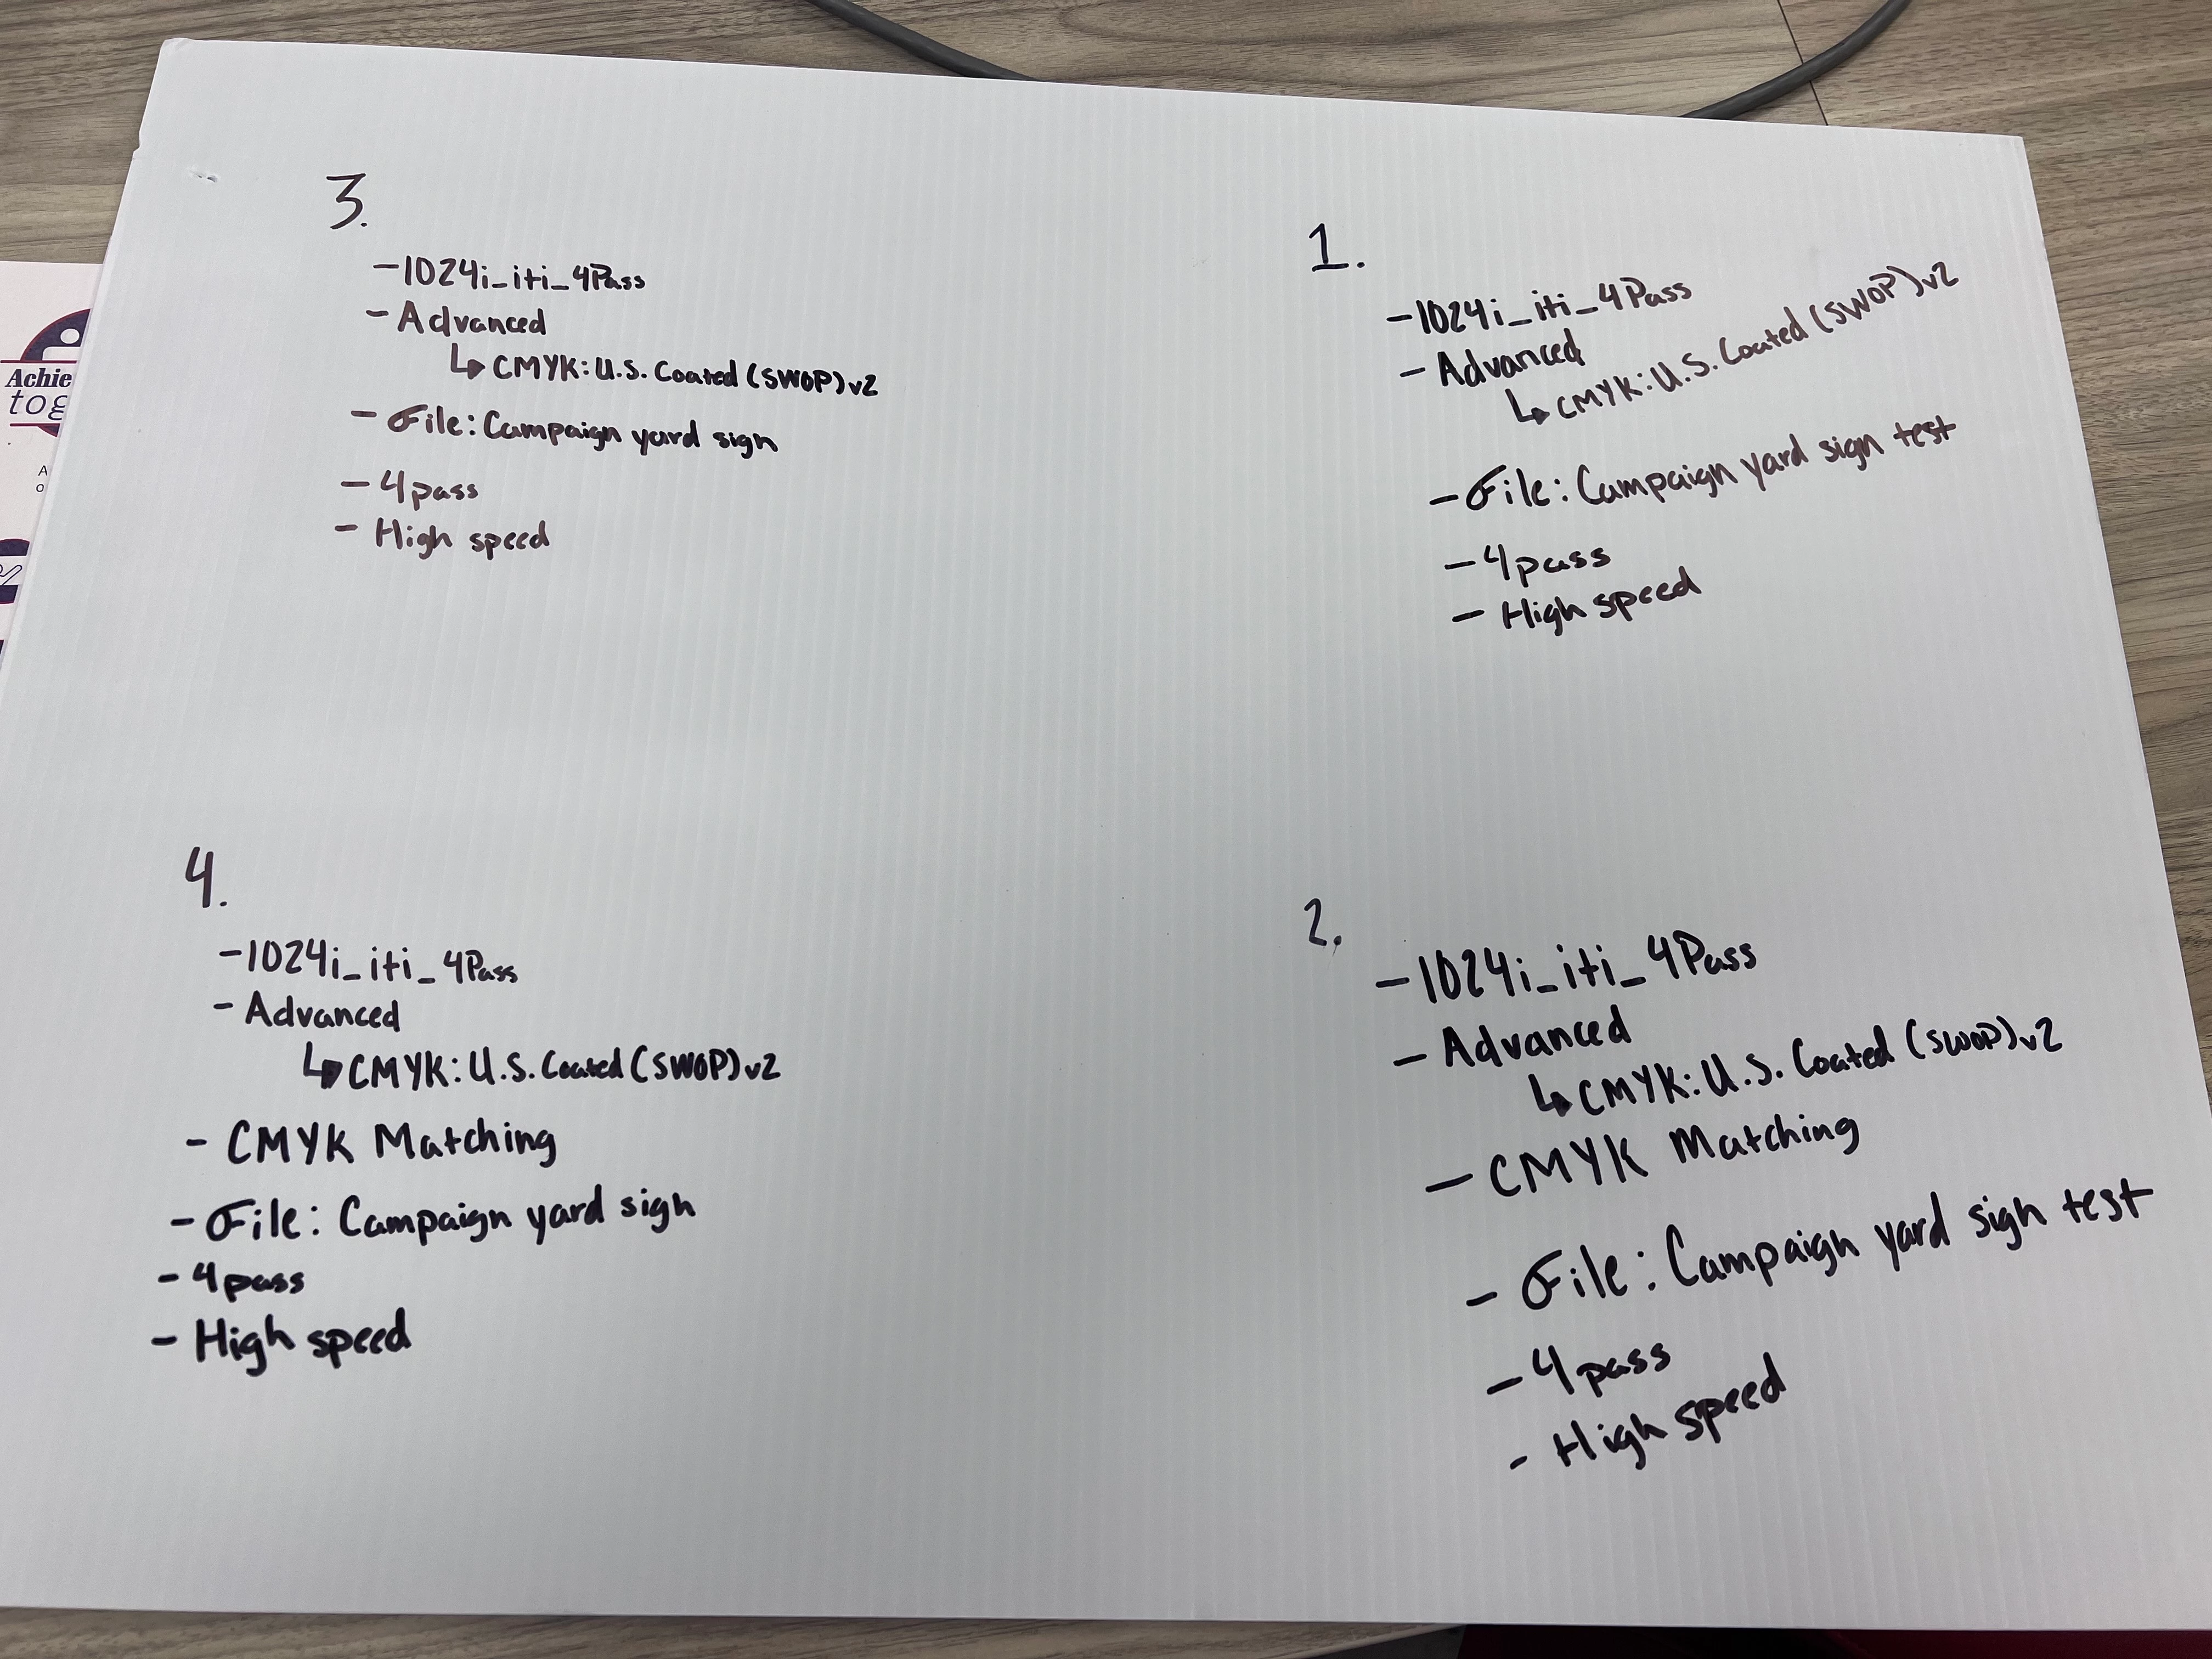 3.
-1024i_iti_4Pass
- Advanced
↳ CMYK: U.S. Coated (SWOP) v2
- File: Campaign yard sign
- 4pass
- High speed
1.
-1024i_iti_4Pass
- Advanced
↳ CMYK: U.S. Coated (SWOP) v2
- File: Campaign yard sign test
- 4pass
- High speed
4.
-1024i_iti_4Pass
- Advanced
↳ CMYK: U.S. Coated (SWOP) v2
- CMYK Matching
- File: Campaign yard sign
- 4pass
- High speed
2.
-1024i_iti_4Pass
- Advanced
↳ CMYK: U.S. Coated (SWOP) v2
- CMYK Matching
- File: Campaign yard sign test
- 4pass
- High speed
Achie
tog